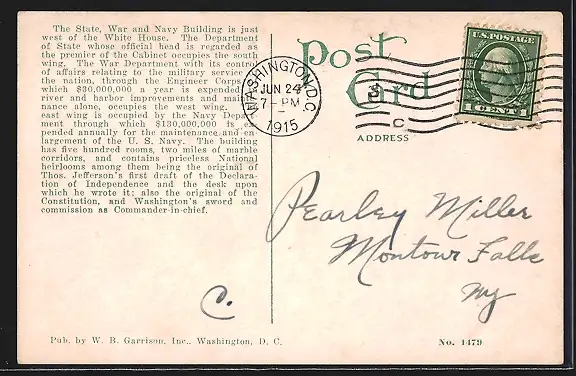 The State, War and Navy Building is just
west of the White House. The Department
of State whose official head is regarded as
the premier of the Cabinet occupies the south
wing. The War Department with its control
of affairs relating to the military service of
the nation, through the Engineer Corps of
which $30,000,000 a year is expended
river and harbor improvements and main-
nance alone, occupies the west wing.
east wing is occupied by the Navy Depart-
ment through which $130,000,000 is ex-
pended annually for the maintenance and en-
largement of the U. S. Navy. The building
has five hundred rooms, two miles of marble
corridors, and contains priceless National
heirlooms among them being the original of
Thos. Jefferson's first draft of the Declara-
tion of Independence and the desk upon
which he wrote it; also the original of the
Constitution, and Washington's sword and
commission as Commander-in-chief.
C.
Pub. by W. B. Garrison, Inc., Washington, D. C.
WASHINGTON, D.C.
JUN 24
7-PM
1915
Post
Card
C
ADDRESS
U.S. POSTAGE
1 CENT 1
Pearley Miller
Montour Falls
NY
No. 1479